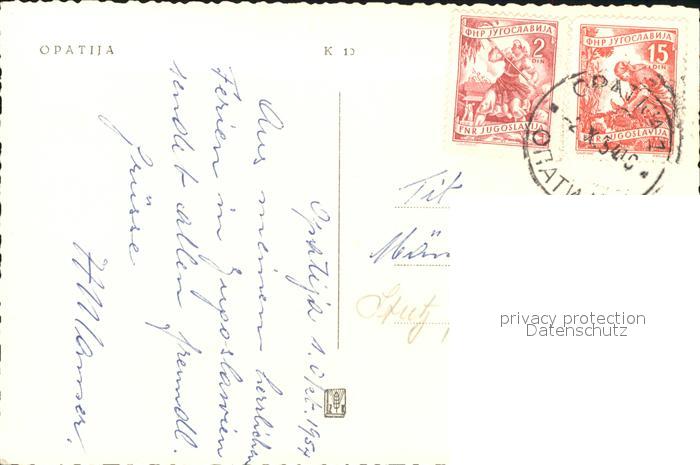 OPATIJA
K 10
ФНР ЈУГОСЛАВИЈА
2
DIN
FNR JUGOSLAVIJA
ФНР ЈУГОСЛАВИЈА
15
DIN
FNR JUGOSLAVIJA
OPATIJA
ОПАТИ
Opatija 1. Okt. 1954
Aus meinen herrlichen
Ferien in Jugoslavien
sendet allen freundl.
Grüsse
Tit
Mün
Stutz
privacy protection
Datenschutz